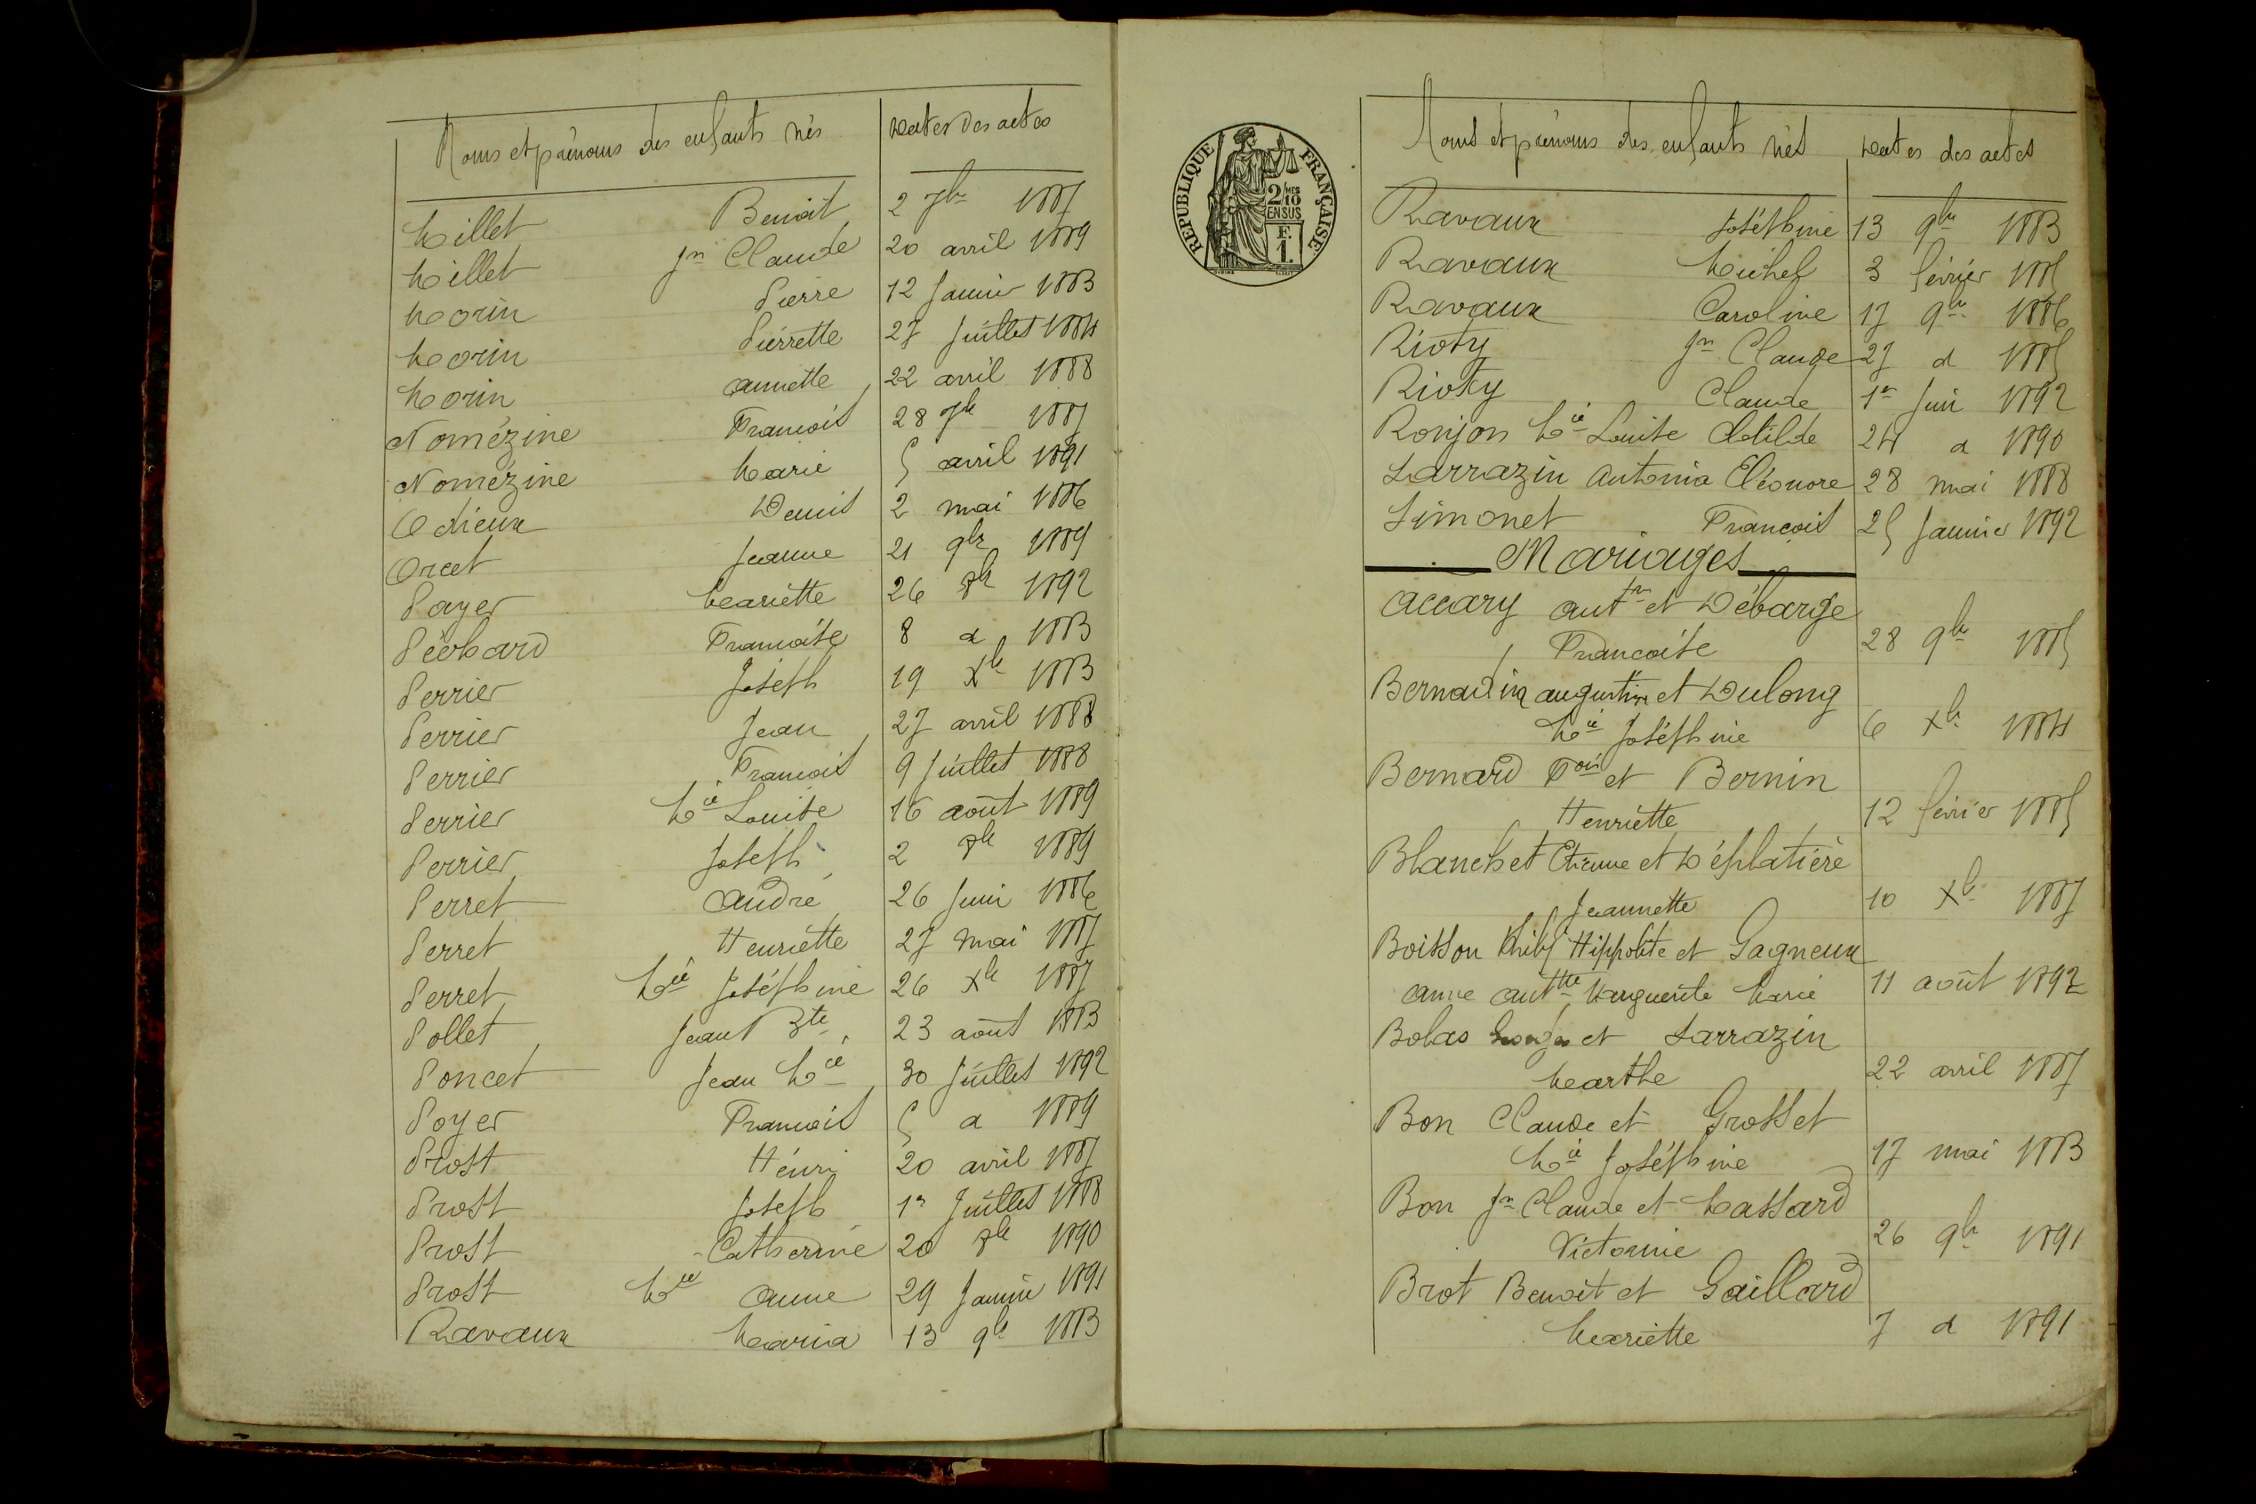 Noms et prénoms des enfants nés Dates des actes
Millet Benoit 2 7bre 1887
Millet Jn Claude 20 avril 1889
Morin Pierre 12 Janvier 1883
Morin Pierrette 27 Juillet 1884
Morin Annette 22 avril 1888
Nomézine Francois 28 7bre 1887
Nomézine Marie 5 avril 1891
Odieux Denis 2 mai 1886
Orcet Jeanne 21 9bre 1889
Payer Mariette 26 8bre 1892
Péchard Francoise 8 d 1883
Perrier Joseph 19 Xbre 1883
Perrier Jean 27 avril 1888
Perrier Francois 9 Juillet 1888
Perrier Mie Louise 16 août 1889
Perrier Joseph 2 8bre 1889
Perret André 26 Juin 1886
Perret Henriette 27 mai 1887
Perret Mie Joséphine 26 Xbre 1887
Pollet Jean Bte 23 août 1883
Poncet Jean Mie 30 Juillet 1892
Poyer Francois 5 d 1889
Prost Hénri 20 avril 1887
Prost Joseph 1er Juillet 1888
Prost Catherine 20 8bre 1890
Prost Mie Anne 29 Janvier 1891
Ravaux Maria 13 9bre 1883
REPUBLIQUE FRANÇAISE
2/10 MES
EN SUS
F.
1.
Noms et prénoms des enfants nés Dates des actes
Ravaux Joséphine 13 9bre 1883
Ravaux Michel 3 février 1885
Ravaux Caroline 17 9bre 1886
Rioty Jn Claude 27 d 1885
Rioty Claude 1er Juin 1892
Ronjon Mie Louise Clotilde 24 d 1890
Sarrazin Antonia Eléonore 28 mai 1888
Simonet Francois 25 Janvier 1892
Mariages
Accary Antne et Débarge
Francoise 28 9bre 1885
Bernardin Augustin et Dulong
Mie Joséphine 6 Xbre 1884
Bernard Fois et Bernin
Henriette 12 février 1885
Blanchet Etienne et Déplatière
Jeannette 10 Xbre 1887
Boisson Philt Hippolite et Gagneux
Anne Anttte Marguerite Marie 11 août 1892
Bolas et Sarrazin
Marthe 22 avril 1887
Bon Claude et Grosset
Mie Joséphine 17 mai 1883
Bon Jn Claude et Massard
Victorine 26 9bre 1891
Brot Benoit et Gaillard
Mariette 7 d 1891